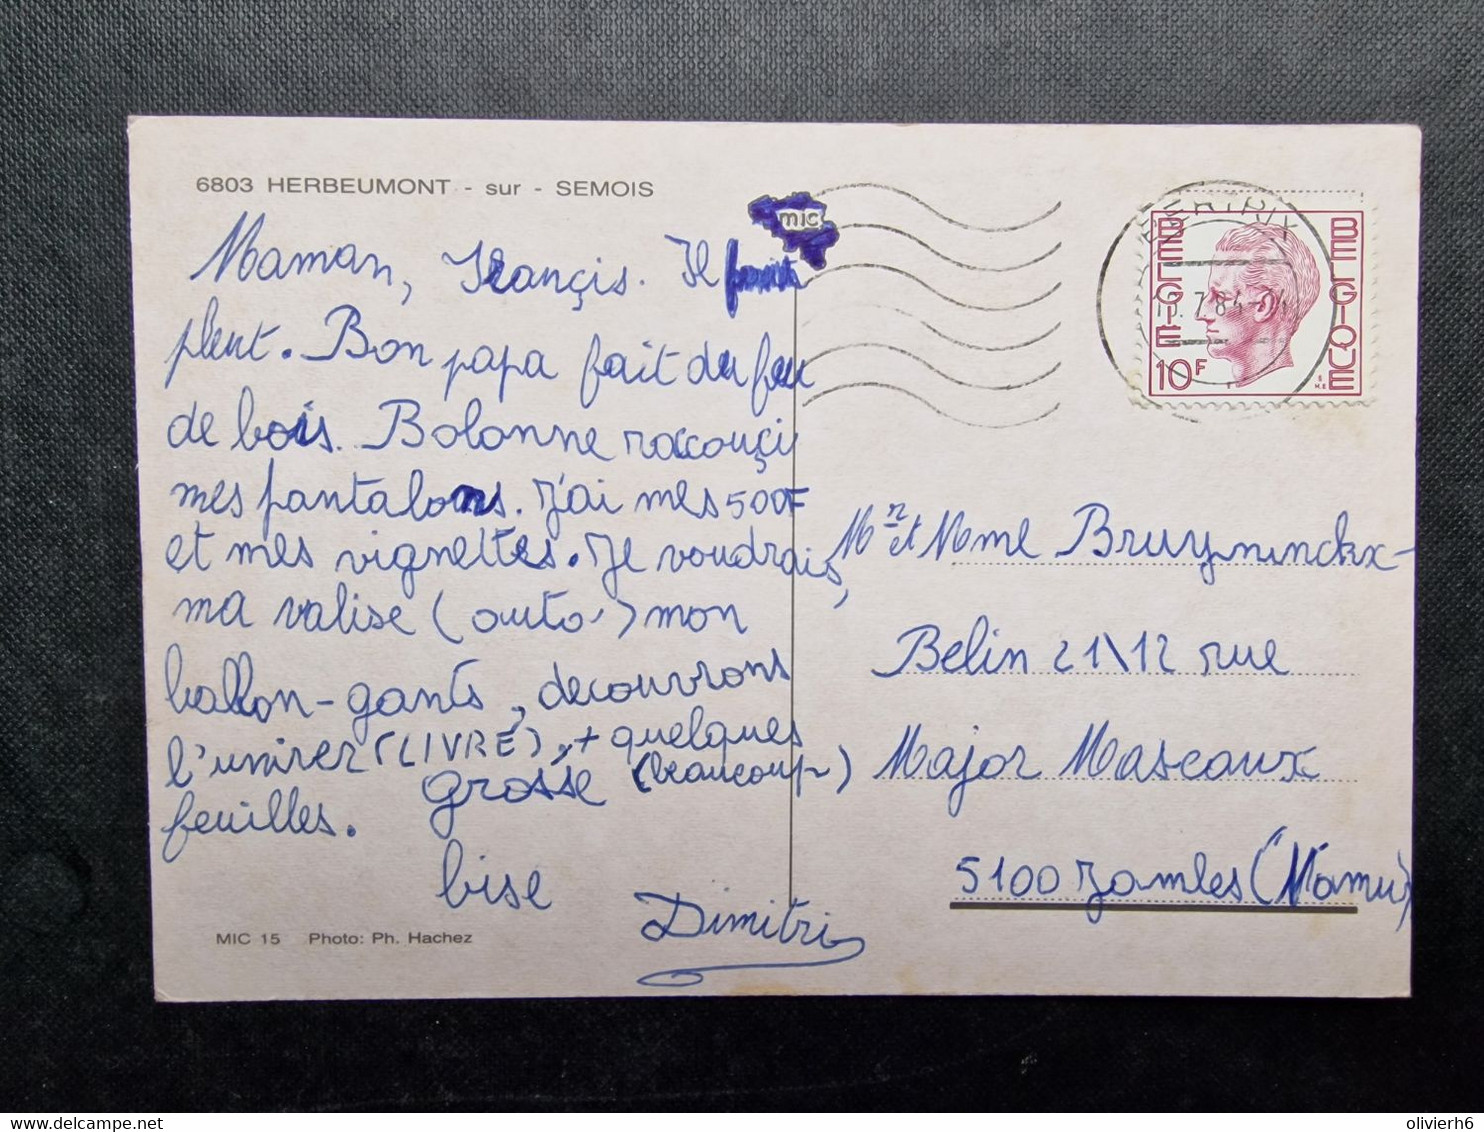 6803 HERBEUMONT - sur - SEMOIS
mic
Maman, Françis. Il
pleut. Bon papa fait du feu
de bois. Bobonne raccourçi
mes pantalons. J'ai mes 500F
et mes vignettes. Je voudrais,
ma valise (auto) mon
ballon-gants, decouvrons
l'univer (LIVRE), + quelques
grosse (beaucoup)
feuilles.
bise
Dimitri
MIC 15 Photo: Ph. Hachez
BERTRIX
7.84
BELGIE
BELGIQUE
10F
Mr et Mme Bruyninckx-
Belin 21\12 rue
Major Mascaux
5100 Jambes (Namur)
olivierh6